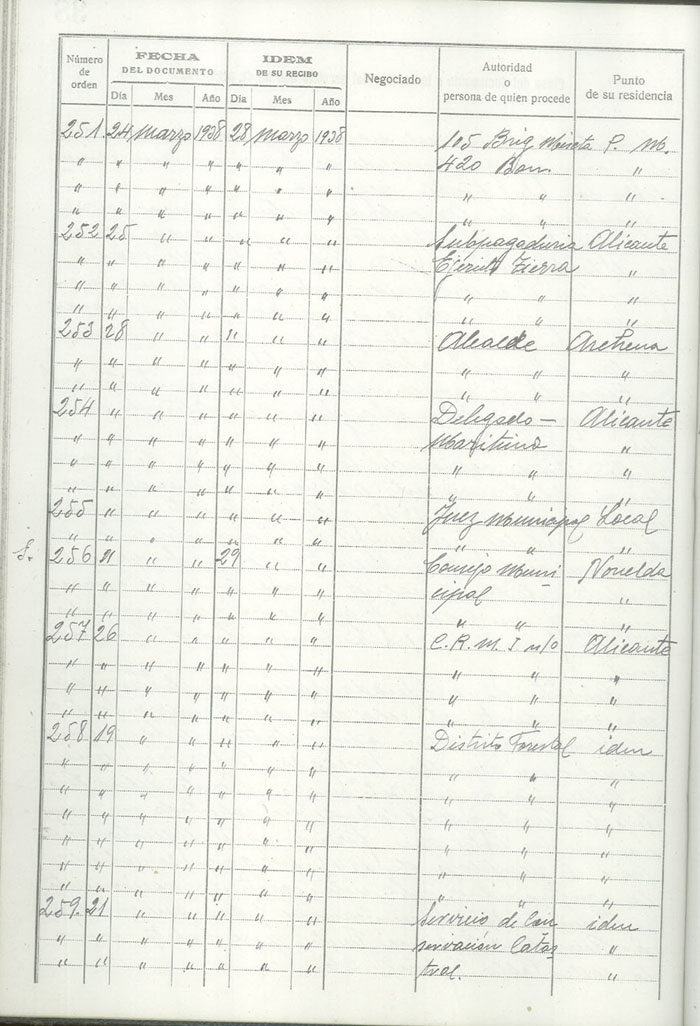 Número de orden FECHA DEL DOCUMENTO IDEM DE SU RECIBO Negociado Autoridad o persona de quien procede Punto de su residencia
Día Mes Año Día Mes Año
251. 24 Marzo 1938 28 Marzo 1938 105 Brig Mixta P. M.
" " " " " " " 420 Bon. "
" " " " " " " " " "
" " " " " " " " " "
252 25 " " " " " Subpagaduria Alicante
" " " " " " " Ejército Tierra "
" " " " " " " " " "
" " " " " " " " " "
253 28 " " " " " Alcalde Archena
" " " " " " " " " "
" " " " " " " " "
254 " " " " " " Delegado — Alicante
" " " " " " " Maritimo "
" " " " " " " " " "
" " " " " " " " " "
255 " " " " " " Juez Municipal Local
" " " " " " " " " "
256 " " " 29 " " Consejo Muni- Novelda
" " " " " " " cipal "
" " " " " " " " " "
257 26 " " " " " C. R. M. I nº Alicante
" " " " " " " " " "
" " " " " " " " " "
" " " " " " " " " "
258 19 " " " " " Distrito Forestal idem
" " " " " " " " " "
" " " " " " " " " "
" " " " " " " " " "
" " " " " " " " " "
" " " " " " " " " "
" " " " " " " " " "
259. 21 " " " " " Servicio de Con idem
" " " " " " " servacion Catas "
" " " " " " " tral. "